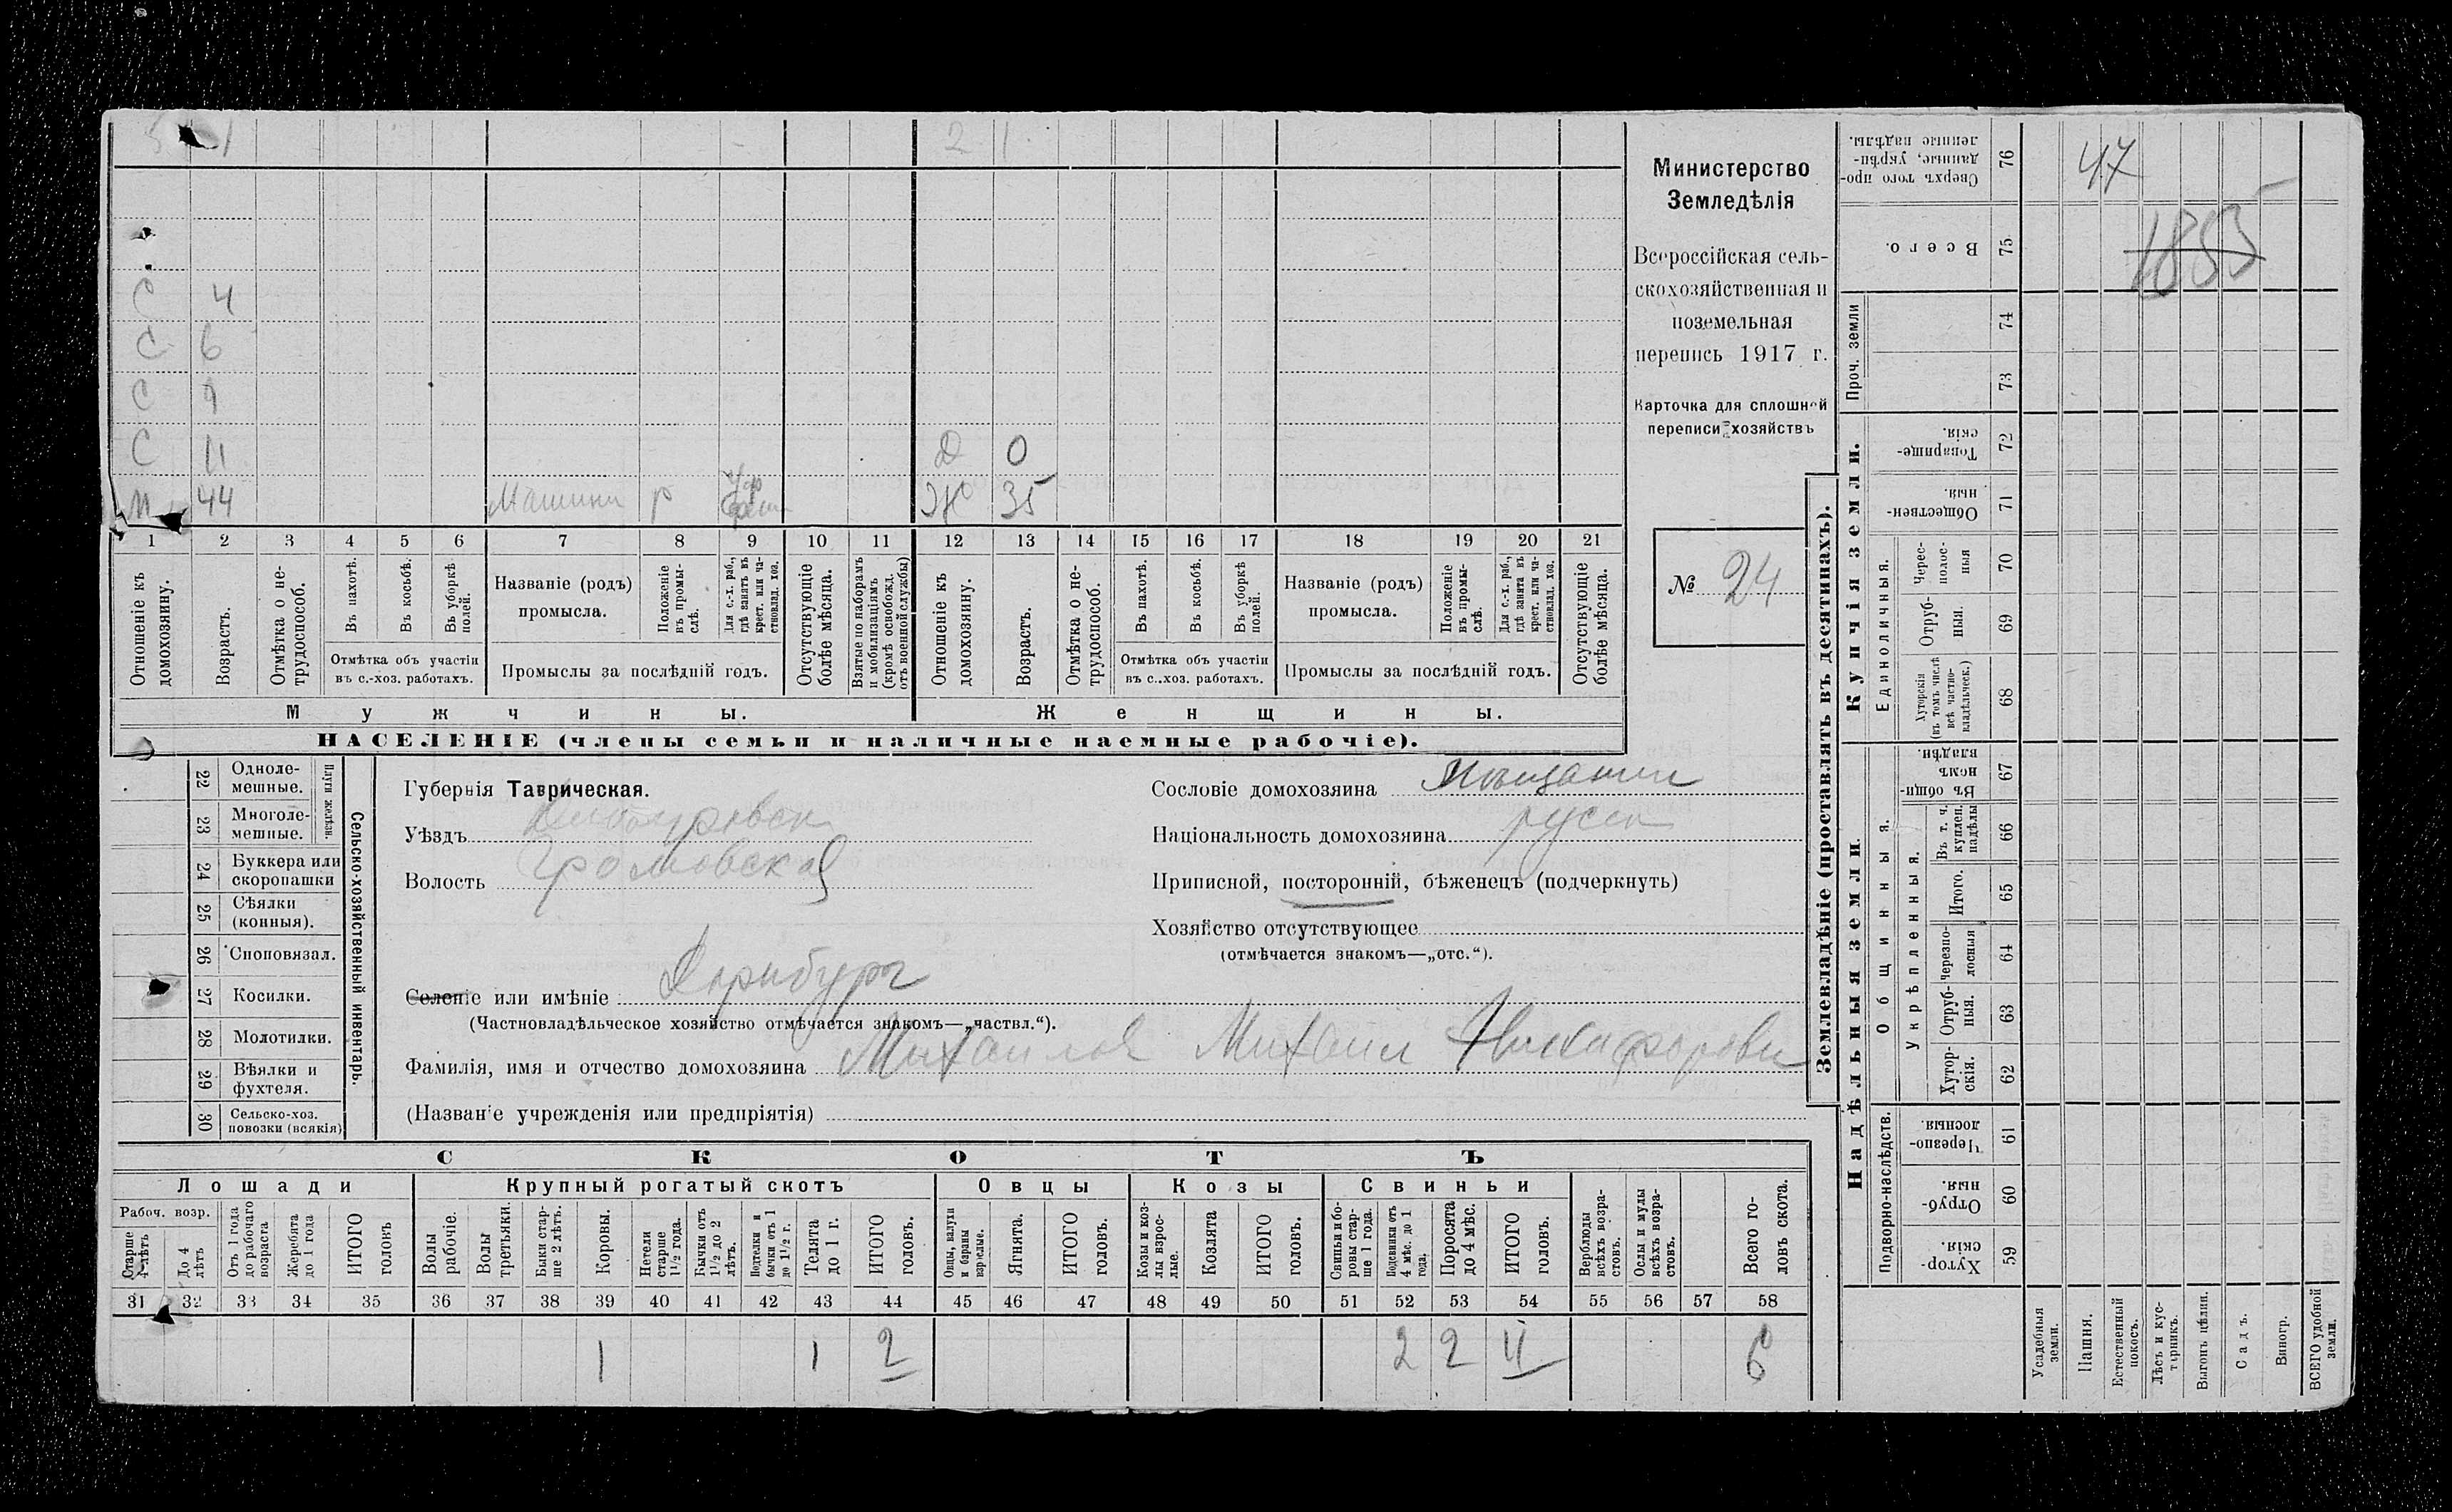 5 1 2 1
С 4
С 6
С 9
С 11 Д 0
М 44 Машини р Ж 35
1 2 3 4 5 6 7 8 9 10 11 12 13 14 15 16 17 18 19 20 21
Отношеніе къ домохозяину.
Возрастъ.
Отмѣтка о нетрудоспособ.
Въ пахотѣ.
Въ косьбѣ.
Въ уборкѣ полей.
Отмѣтка объ участіи
въ с.-хоз. работахъ.
Названіе (родъ)
промысла.
Положеніе въ промыслѣ.
Для с.-х. раб., гдѣ занятъ въ крест. или частновлад. хоз.
Промыслы за послѣдній годъ.
Отсутствующіе болѣе мѣсяца.
Взятые по наборамъ и мобилизаціямъ (кромѣ освобожд. отъ военной службы)
Отношеніе къ домохозяину.
Возрастъ.
Отмѣтка о нетрудоспособ.
Въ пахотѣ.
Въ косьбѣ.
Въ уборкѣ полей.
Отмѣтка объ участіи
въ с..хоз. работахъ.
Названіе (родъ)
промысла.
Положеніе въ промыслѣ.
Для с.-х. раб., гдѣ занята въ крест. или частновлад. хоз.
Промыслы за послѣдній годъ.
Отсутствующіе болѣе мѣсяца.
Мужчины.
Женщины.
НАСЕЛЕНІЕ (члены семьи и наличные наемные рабочіе).
Министерство
Земледѣлія
Всероссійская сель-
скохозяйственная и
поземельная
перепись 1917 г.
Карточка для сплошной
переписи хозяйствъ
№ 24
Сельско-хозяйственный инвентарь.
Плуги желѣзн.
22 Однолемешные.
23 Многолемешные.
24 Буккера или скоропашки
25 Сѣялки (конныя).
26 Сноповязал.
27 Косилки.
28 Молотилки.
29 Вѣялки и фухтеля.
30 Сельско-хоз. повозки (всякія)
Губернія Таврическая.
Уѣздъ
Волость Громовская
Селеніе или имѣніе
(Частновладѣльческое хозяйство отмѣчается знакомъ—„частвл.“).
Фамилія, имя и отчество домохозяина Михайлов Михаил Никифорови
(Названіе учрежденія или предпріятія)
Сословіе домохозяина Мѣщанин
Національность домохозяина русск
Приписной, посторонній, бѣженецъ (подчеркнуть)
Хозяйство отсутствующее
(отмѣчается знакомъ—„отс.“).
СКОТЪ
Лошади
Крупный рогатый скотъ
Овцы
Козы
Свиньи
Рабоч. возр.
Старше 4 лѣтъ
До 4 лѣтъ
Отъ 1 года до рабочаго возраста
Жеребята до 1 года
ИТОГО головъ
Волы рабочіе.
Волы третьяки.
Быки старше 2 лѣтъ.
Коровы.
Нетели старше 1½ года.
Бычки отъ 1½ до 2 лѣтъ.
Подтелки и бычки отъ 1 до 1½ г.
Телята до 1 г.
ИТОГО головъ.
Овцы, валухи и бараны взрослые.
Ягнята.
ИТОГО головъ.
Козы и козлы взрослые.
Козлята
ИТОГО головъ.
Свиньи и боровы старше 1 года.
Подсвинки отъ 4 мѣс. до 1 года.
Поросята до 4 мѣс.
ИТОГО головъ.
Верблюды всѣхъ возрастовъ.
Ослы и мулы всѣхъ возрастовъ.
Всего головъ скота.
31 32 33 34 35 36 37 38 39 40 41 42 43 44 45 46 47 48 49 50 51 52 53 54 55 56 57 58
1 1 2 2 2 4 6
Землевладѣніе (проставлять въ десятинахъ).
Купчія земли.
Надѣльныя земли.
76 Сверхъ того проданные, укрѣпленные надѣлы.
75 Всего.
Проч. земли
74
73
72 Товарищескія.
71 Общественныя.
Единоличныя.
70 Чересполосныя
69 Отрубныя.
68 Хуторскія (въ томъ числѣ всѣ частновладѣльческ.)
Общинныя.
67 Въ общинномъ владѣн.
Укрѣпленныя.
66 Въ т. ч. куплен. надѣлы
65 Итого.
64 Черезполосныя
63 Отрубныя.
62 Хуторскія.
Подворно-наслѣдств.
61 Черезполосныя.
60 Отрубныя.
59 Хуторскія.
Усадебныя земли.
Пашня.
Естественный покосъ.
Лѣсъ и кустарникъ.
Выгонъ цѣлин.
Садъ.
Виногр.
ВСЕГО удобной земли.
47
1855